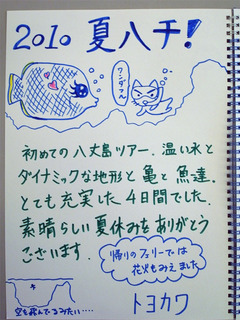 2010 夏八チ!
ワンダフル
初めての八丈島ツアー、温い水と
ダイナミックな地形と亀と魚達。
とても充実した4日間でした。
素晴らしい夏休みをありがとう
ございます。
帰りのフェリーでは
花火もみえました
空を飛んでるみたい・・・・
トヨカワ